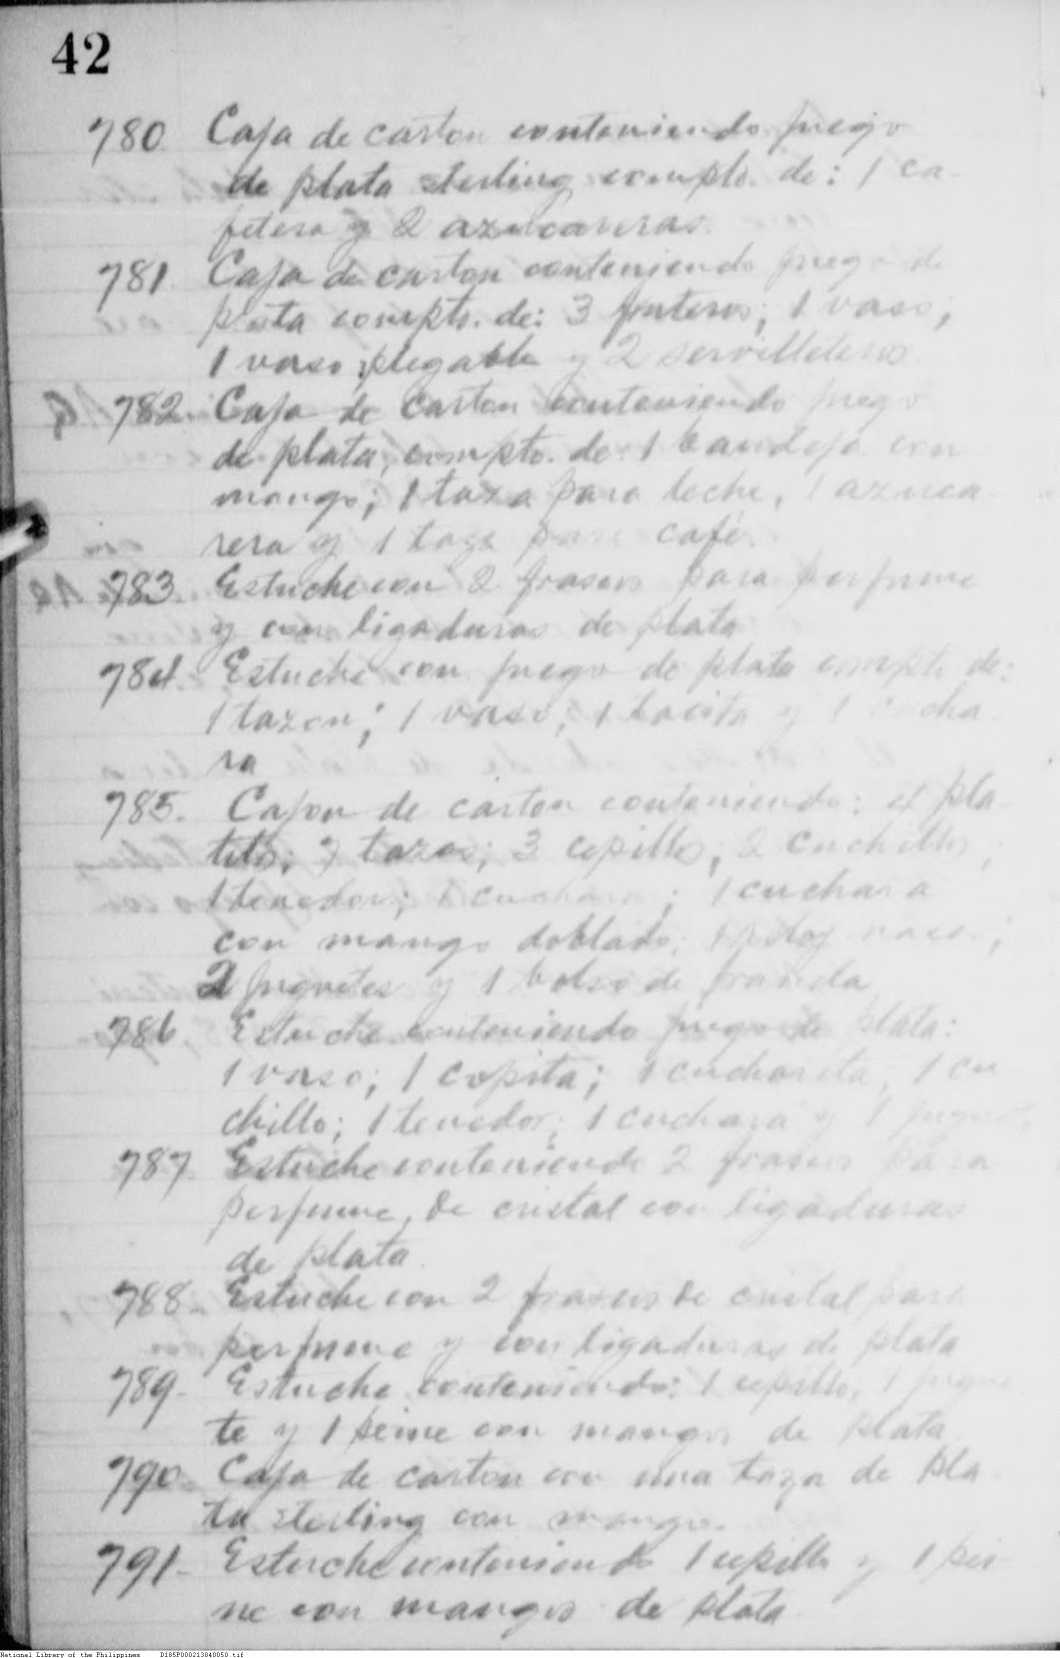 42
780 Caja de carton conteniendo juego
de plata sterling compto. de: 1 ca-
fetera y 2 azucareras.
781. Caja de carton conteniendo juego de
plata compto. de: 3 fruteros; 1 vaso;
1 vaso plegable y 2 servilleteros
782. Caja de carton conteniendo juego
de plata, compto. de: 1 bandeja con
mango; 1 taza para leche, 1 azuca-
rera y 1 taza para café.
783 Estuche con 2 frascos para perfume
y con ligaduras de plata
784. Estuche con juego de plata compto de:
1 tazon; 1 vaso; 1 tacita y 1 cucha-
ra
785. Cajon de carton conteniendo: 4 pla-
tits; 7 tazas; 3 cepillos; 2 cuchillos;
1 tenedor; 1 cuchara; 1 cuchara
con mango doblado; 1 vaso;
2 juguetes y 1 bolso de franela
786 Estuche conteniendo juego de plata:
1 vaso; 1 copita; 1 cucharita; 1 cu-
chillo; 1 tenedor; 1 cuchara y 1
787. Estuche conteniendo 2 frascos para
perfume, de cristal con ligaduras
de plata.
788- Estuche con 2 frascos de cristal para
perfume y con ligaduras de plata
789- Estuche conteniendo: 1 cepillo, 1 jugue-
te y 1 peine con mangos de plata
790- Caja de carton con una taza de pla-
ta sterling con mango.
791- Estuche conteniendo 1 cepillo y 1 pei-
ne con mangos de plata
National Library of the Philippines D185P000213840050.tif